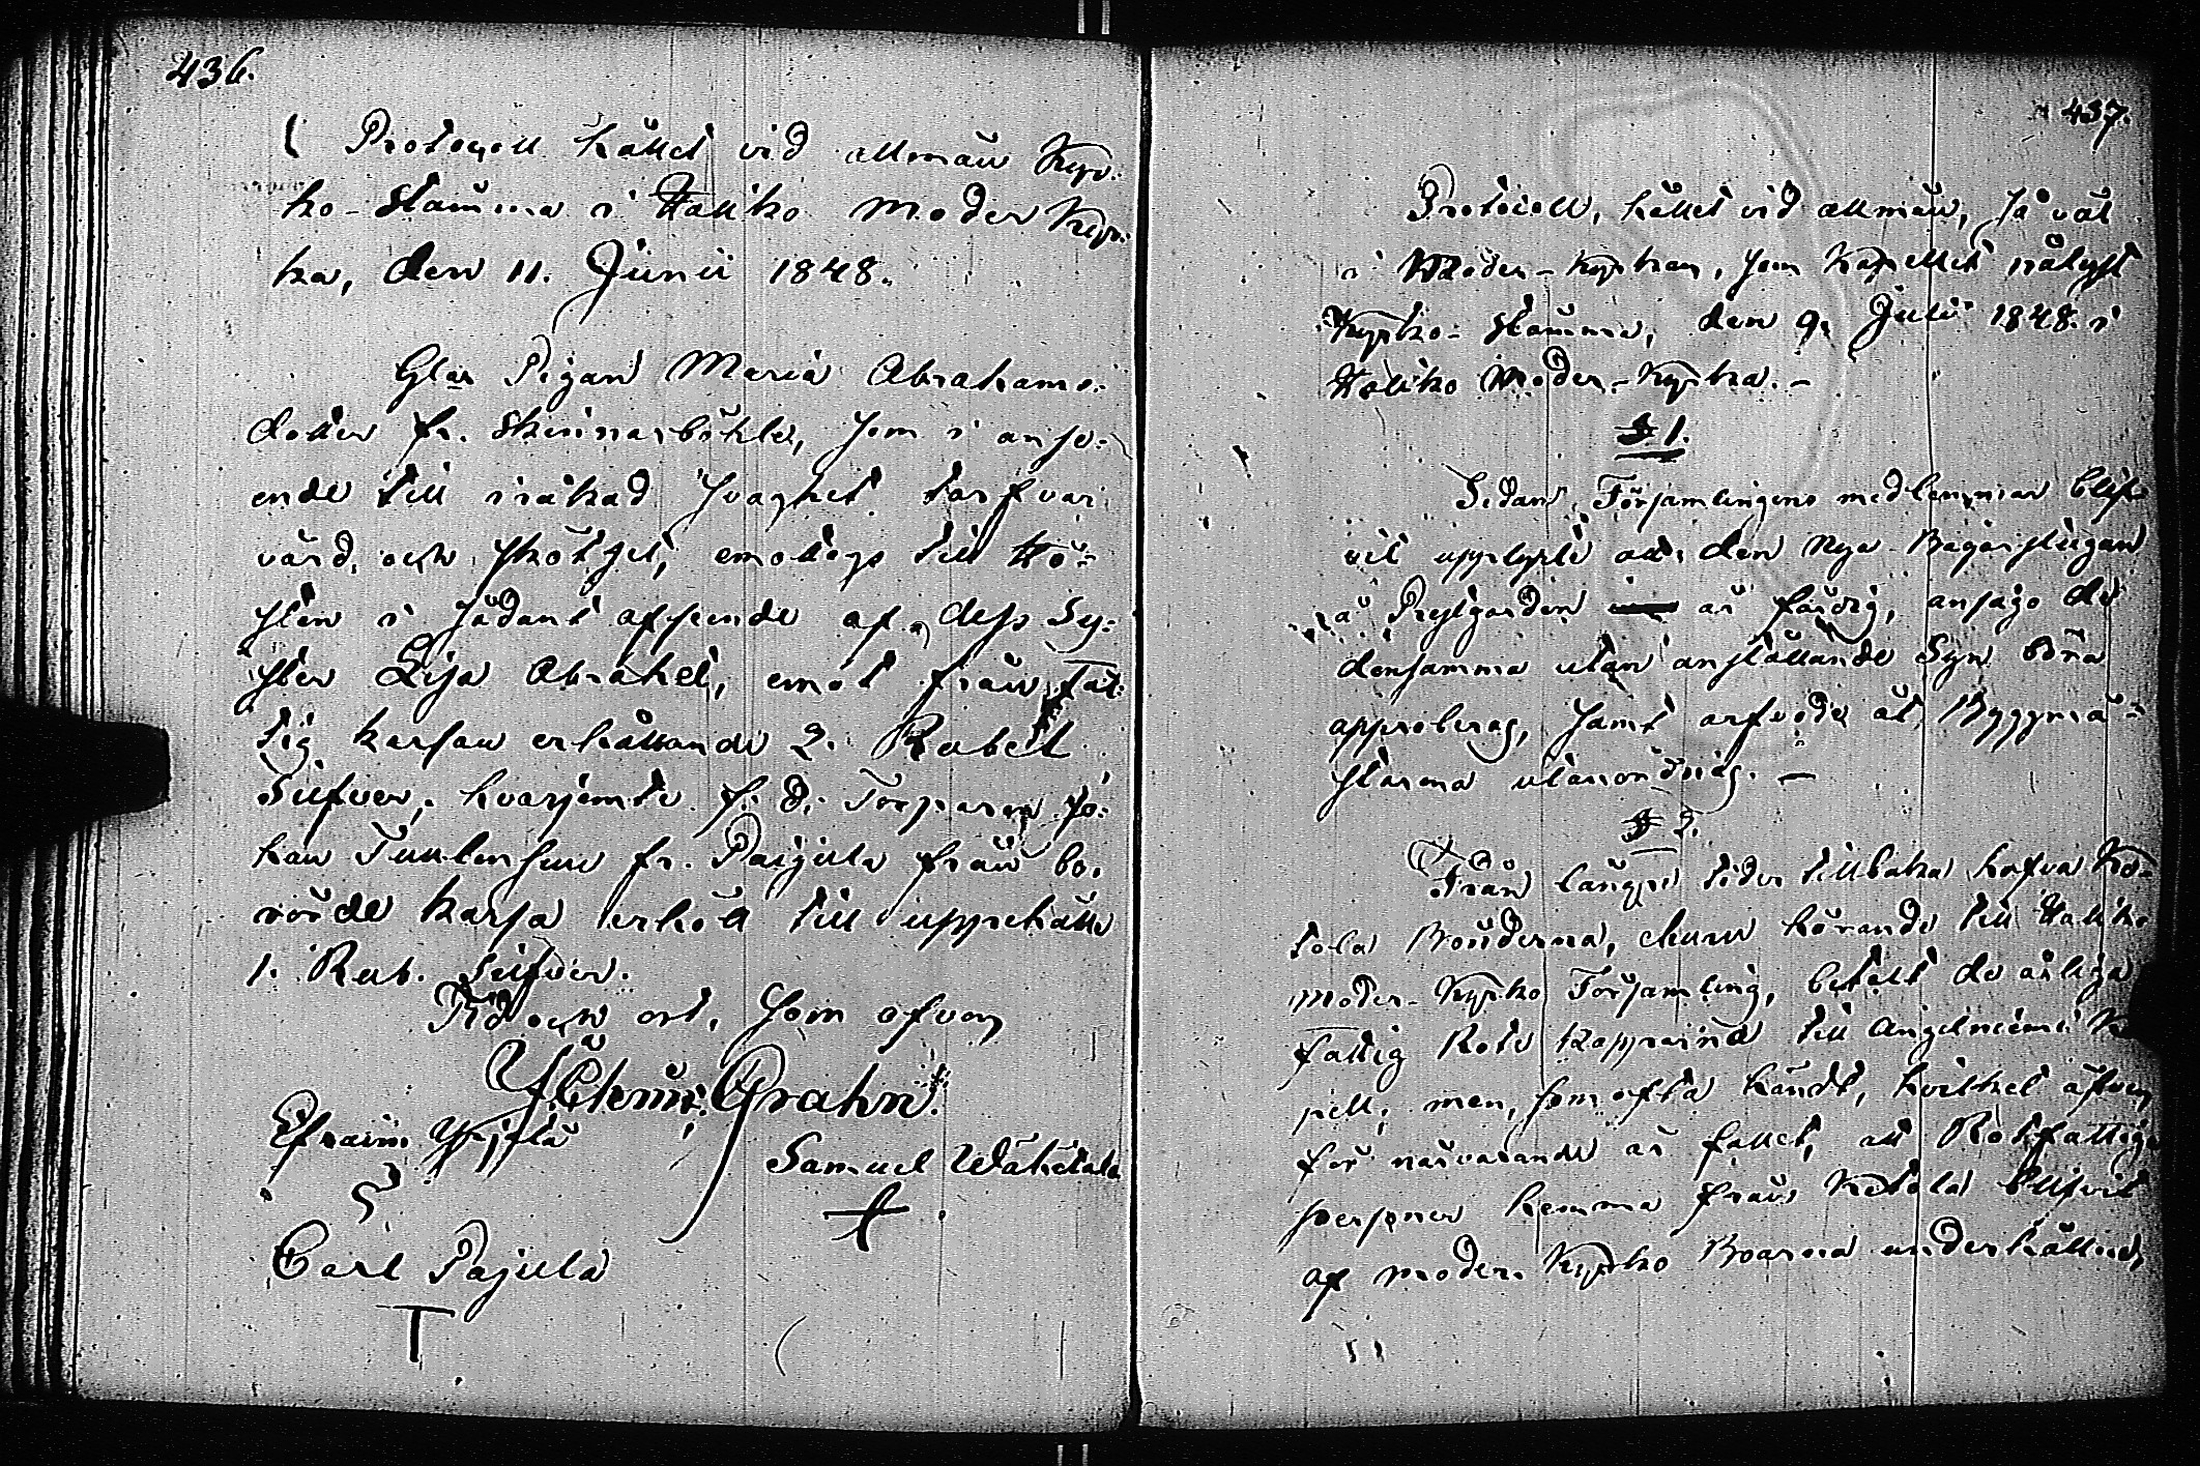 436.
Protocoll hållet vid allmän Kyr-
ko-stämma i Halikko Moder Kyr-
ka, den 11. Junii 1848.
Gla Pigan Maria Abrahams-
dotter fr. Skinnarböhle, som i anse-
ende till iråkad svaghet tarfvar
vård och skötsel, emottogs till Hö-
sten i sådant afseende af dess Sy-
ster Lisa Abrahed, emot från Fat-
tig kassan erhållande 2. Rubel
Silfver, hvarjemte f. d. Torparen Jo-
han Tullensuu fr. Pajula från be-
rörde kassa erhöll till uppehälle
1. Rub. Silfver.
Tid och ort, som ofvan
Grahn.
Efraim Yrjylä
Samuel Wähätalo
Carl Pajula
437.
Protocoll, hållet vid allmän, så väl
i Moder-Kyrkan, som Kapellet pålyst
Kyrko-stämma, den 9. Julii 1848. i
Halikko Moder-Kyrka. -
§ 1.
Sedan Församlingens medlemmar blif-
vit upplyste att den nya Bagarstugan
å Prestgården är färdig, ansågo de
densamma utan anställande Syn böra
approberas, samt arfvode åt Byggmä-
starna utanordnas. -
§ 2.
Från längre tider tillbaka hafva Ke-
tola Bönderna, ehuru hörande till Halikko
Moder-Kyrko Församling, betalt de årliga
fattig Rote kapparna till Angelniemi Ka-
pell; men, som ofta händt, hvilket äfven
för närvarande är fallet, att Rotfattige
personer hemma från Ketola blifvit
af moder-Kyrko Boarna underhållne,